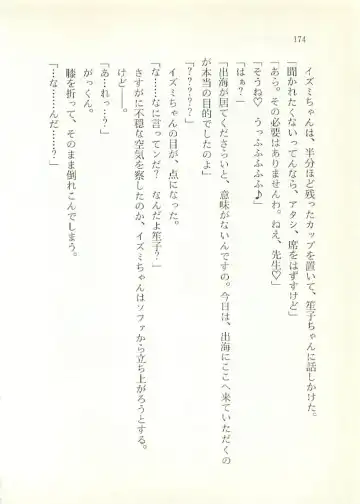 174
イズミちゃんは、半分ほど残ったカップを置いて、笙子ちゃんに話しかけた。
「聞かれたくないってんなら、アタシ、席をはずすけど」
「あら。その必要はありませんわ。ねえ、先生♡」
「そうね♡　うっふふふふふ♪」
「はぁ？」
「出海が居てくださらないと、意味がないんですの。今日は、出海にここへ来ていただくの
が本当の目的でしたのよ」
「？？？？？」
イズミちゃんの目が、点になった。
「な……なに言ってンだ？　なんだよ笙子？」
さすがに不穏な空気を察したのか、イズミちゃんはソファから立ち上がろうとする。
けど――。
「あ…れっ…？」
がっくん。
膝を折って、そのまま倒れこんでしまう。
「な……なんだ……？」